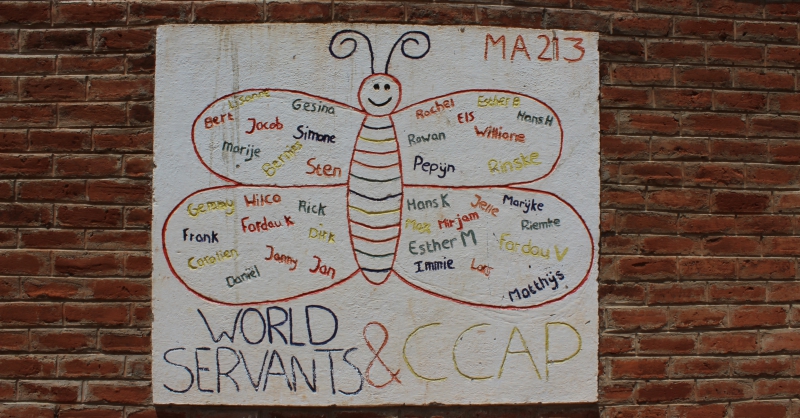 MA213
Lisanne
Bert Jacob Gesina
Marije Bernies Simone
Sten
Rachel Esther B
Els Hans H
Rowan Williane
Pepijn Rinske
Gemmy Hilco Rick
Frank Fardau K Dirk
Carolien Janny Jan
Daniël
Hans K Jelle Marijke
Max Mirjam Riemke
Esther M Fardau V
Immie Lars
Matthijs
WORLD
SERVANTS & CCAP